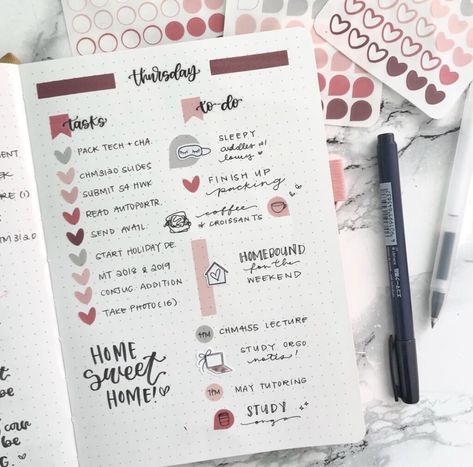 thursday
tasks
PACK TECH + CHA.
CHM3120 SLIDES
SUBMIT S4 HWK
READ AUTOPORTR.
SEND AVAIL.
START HOLIDAY DE.
MT 2018 & 2019
CONJUG. ADDITION
TAKE PHOTO (16)
HOME
sweet
HOME!
to-do
SLEPY
cuddles w/
FINISH UP
packing
coffee
& CROISSANTS
HOMEBOUND
for the
WEEKEND
1PM CHM4155 LECTURE
STUDY ORGO
notes!
7PM MAY TUTORING
STUDY
orgo
M3120
be
be